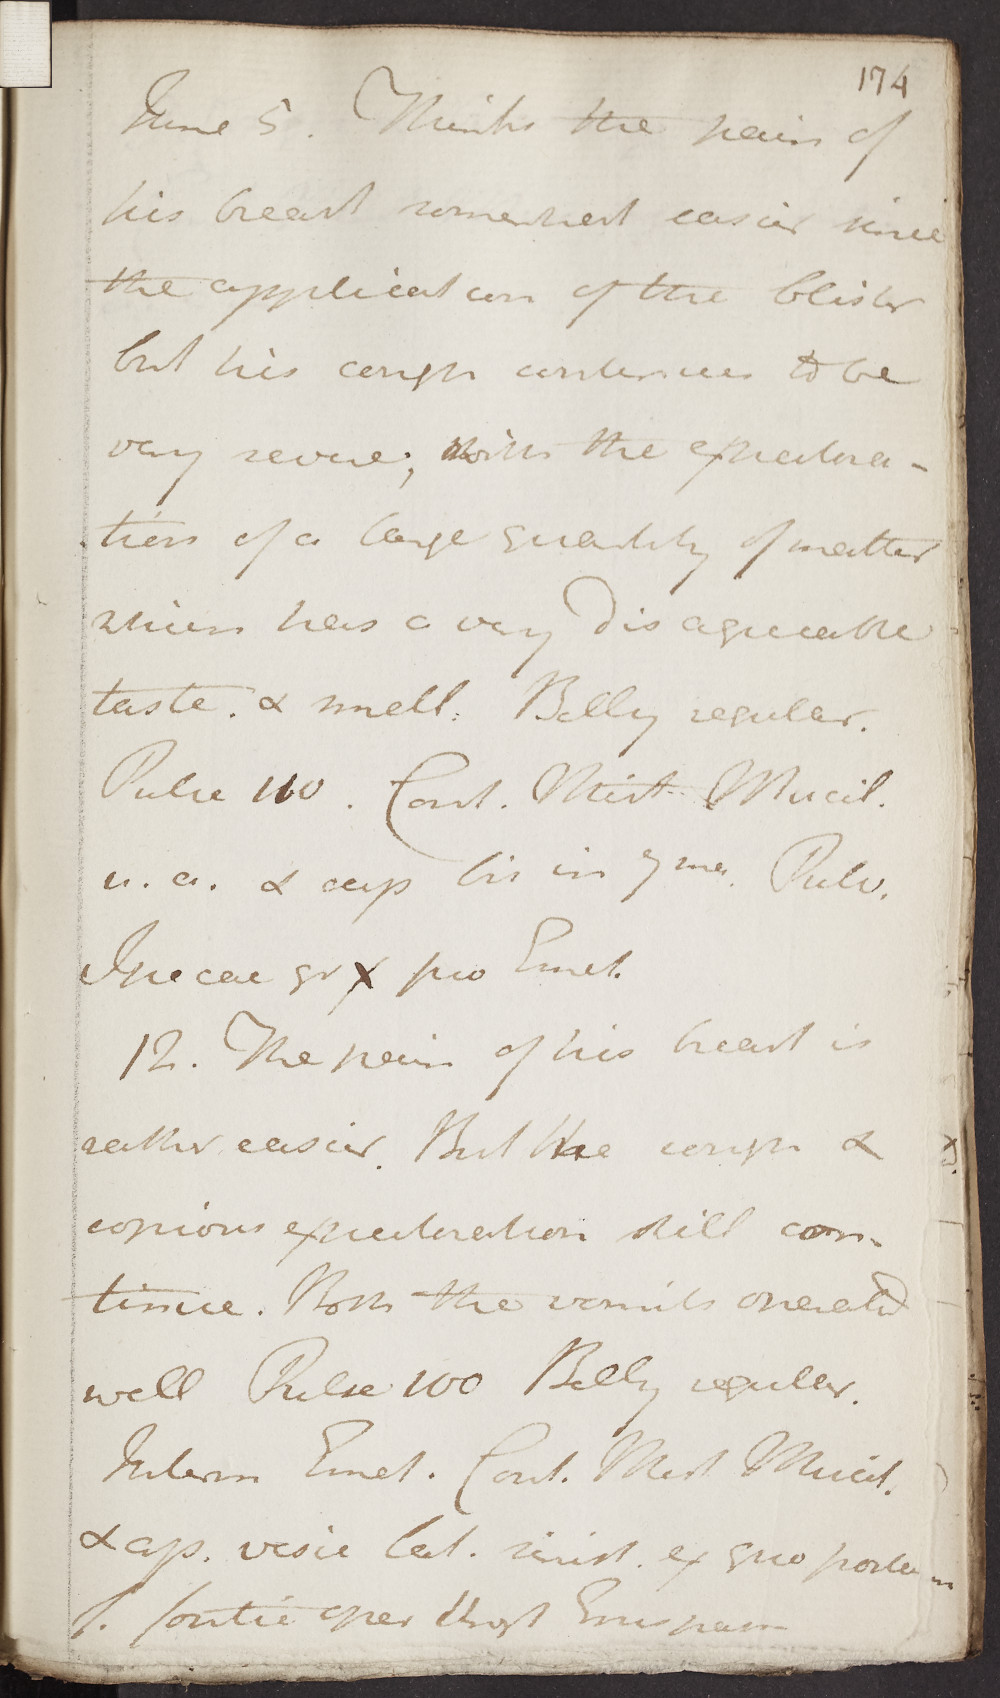 174
June 5. Thinks the pain of
his breast somewhat easier since
the application of the blister
but his cough continues to be
very severe, with the expectora-
tion of a large quantity of matter
which has a very disagreeable
taste. & smell. Belly regular.
Pulse 110. Cont. Mist. Mucil.
u. a. & cap bis in 7ma. Pulv.
Ipecac gr x pro Emet.
12. The pain of his breast is
rather easier. But the cough &
copious expectoration still con-
tinue. Both the vomits operated
well Pulse 100 Belly regular.
Interm Emet. Cont. Mist. Mucil.
& ap. vesic lat. sinist. ex quo postea
f. fontic ope Ungt Emispasm